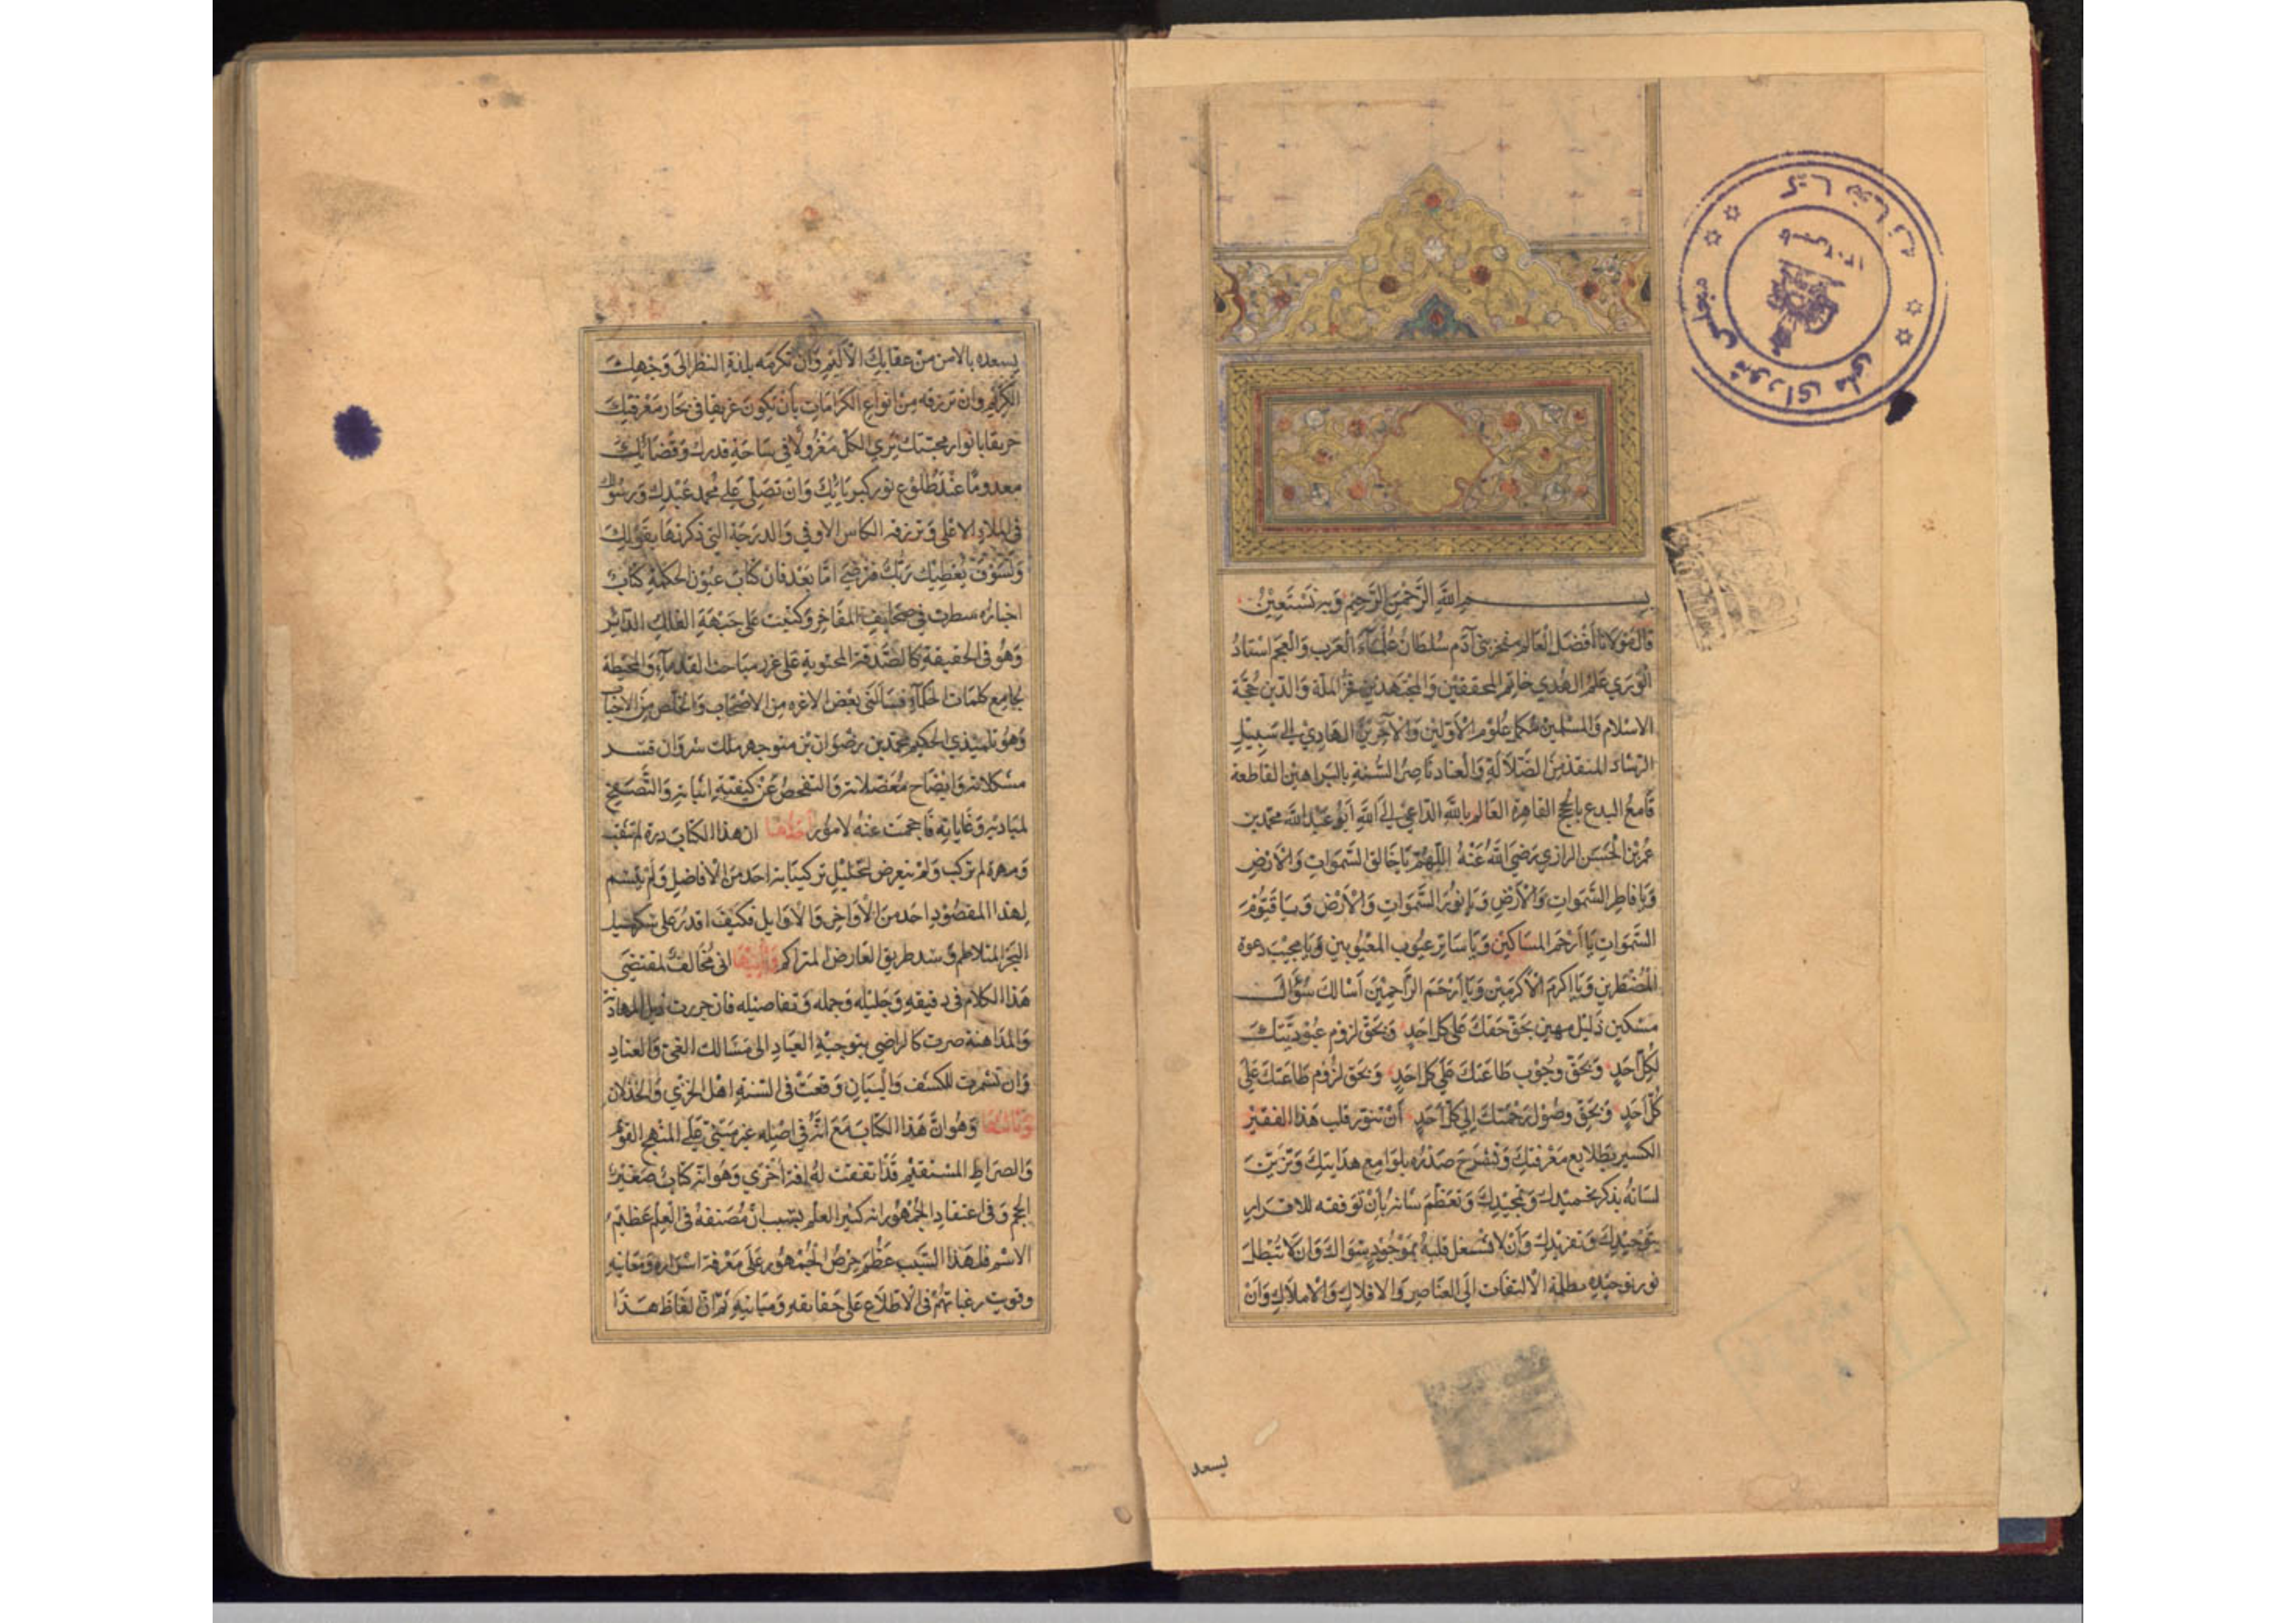 بسم الله الرحمن الرحيم وبه نستعين
قال مولانا أفضل العالم مفخر بنى آدم سلطان علماء العرب والعجم استاد
الورى علم الهدي خاتم المحققين والمجتهدين فخر الملة والدين حجة
الاسلام والمسلمين محكم علوم الأولين والآخرين الهادي الى سبيل
الرشاد المنقذ من الضلالة والعناد ناصر السنة بالبراهين القاطعة
قامع البدع بالحجج القاهرة العالم بالله الداعي الى الله أبو عبد الله محمد بن
عمر بن الحسن الرازي رضي الله عنه اللهم يا خالق السموات والأرض
ويا فاطر السموات والأرض ويا نور السموات والأرض ويا قيوم
السموات يا أرحم المساكين ويا ساتر عيوب المعيوبين ويا مجيب دعوة
المضطرين ويا اكرم الأكرمين ويا أرحم الراحمين أسالك سؤال
مسكين ذليل مهين بحق حقك على كل احد وبحق لزوم عبوديتك
لكل أحد وبحق وجوب طاعتك على كل احد وبحق لزوم طاعتك على
كل أحد وبحق وصول رحمتك إلى كل أحد أن تنور قلب هذا الفقير
الكسير بطلايع معرفتك وتشرح صدره بلوامع هدايتك وتزين
لسانه بذكر تحميدك وتمجيدك وتعظم شانه بأن توفقه للاقرار
بتوحيدك وتفريدك وأن لا تشغل قلبه بموجود سواك وان لا تبطل
نور توحيده بظلمة الالتفات الى العناصر والافلاك والاملاك وأن
يسعد
يسعده بالامن من عقابك الأليم وأن تكرمه بلذة النظر الى وجهك
الكريم وان ترزقه من انواع الكرامات بأن يكون غريقا في بحار معرفتك
حريقا بانوار محبتك يري الكل معزولا في ساحة قدرك وقضائك
معدوما عند طلوع نور كبريائك وان تصلي على محمد عبدك ورسولك
في الملاء الاعلى وترزقه الكاس الاوفي والدرجة التي ذكرتها بقولك
ولسوف يعطيك ربك فترضي امّا بعد فان كتاب عيون الحكمة كتاب
اخباره سطرت في صحايف المفاخر وكتبت على جبهة الفلك الدائر
وهو في الحقيقة كالصدفة المحتوية على غرر مباحث القدماء والمحيطة
بجامع كلمات الحكماء فسألني بعض الاعزه من الاصحاب والخلص من الاحباب
وهو تلميذي الحكيم محمد بن رضوان بن منوجهر ملك شروان
مشكلاته وايضاح معضلاته والتفحص عن كيفية اثباته والتصحيح
لمباديه وغاياته فاحجمت عنه لامور احدها ان هذا الكتاب درة لم تثقب
ومهرة لم تركب ولم يتعرض لتحليل تركيباته احد من الأفاضل ولم
لهذا المقصود احد من الأواخر والأوايل فكيف اقدر على تسهيل
البحر المتلاطم وسد طريق العارض المتراكم وثانيها انى مخالف لمقتضى
هذا الكلام في دقيقه وجليله وجمله وتفاصيله فان جررت ذيل المهادنة
والمداهنة صرت كالراضي بتوجيه العباد الى مسالك الغي والعناد
وان تشمرت للكشف والبيان وقعت في السنة اهل الخزي والخذلان
وثالثها وهو ان هذا الكتاب مع انه في اصله غير مبني على المنهج القويم
والصراط المستقيم قد اتفقت له افة أخرى وهو انه كتاب صغير
الحجم وفي اعتقاد الجمهور انه كثير العلم بسبب أن مصنفه في العلم عظيم
الاسم فلهذا السبب عظم حرص الجمهور على معرفة اسراره ومعانيه
وقويت رغباتهم في الاطلاع على حقايقه ومبانيه ثم ان الفاظ هذا